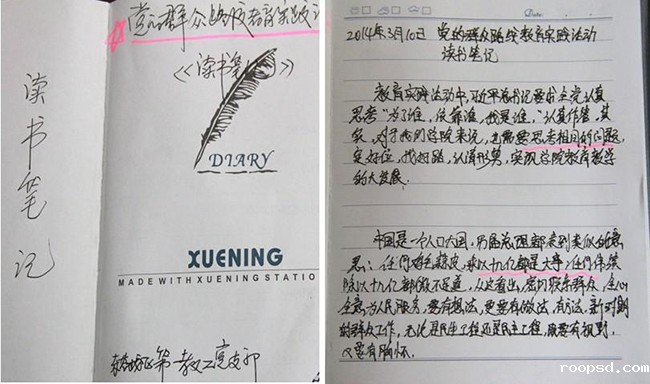 党的群众路线教育实践活
《读书笔记》
读书笔记
DIARY
XUENING
MADE WITH XUENING STATIO
第一教工党支部
Date:
2014年3月10日 党的群众路线教育实践活动
读书笔记
教育实践活动中,习近平总书记要求全党认真
思考“为了谁,依靠谁,我是谁,”认真作答,其
实,对于我们学院来说,也需要思考相同的问题,
定好位,找对路,认清形势,实现学院教育教学
的大发展.
中国是一个人口大国,历届总理都表到类似的意
思:任何难乘以十几亿都是大事,任何伟绩
除以十几亿都微不足道,从这看出,密切联系群众,全心
全意为人民服务,要有想法,更要有做法,有方法,新时期
的群众工作,无论是民生工程还是民主工程,既要有规则,
又要有胸怀.
roopsd.com